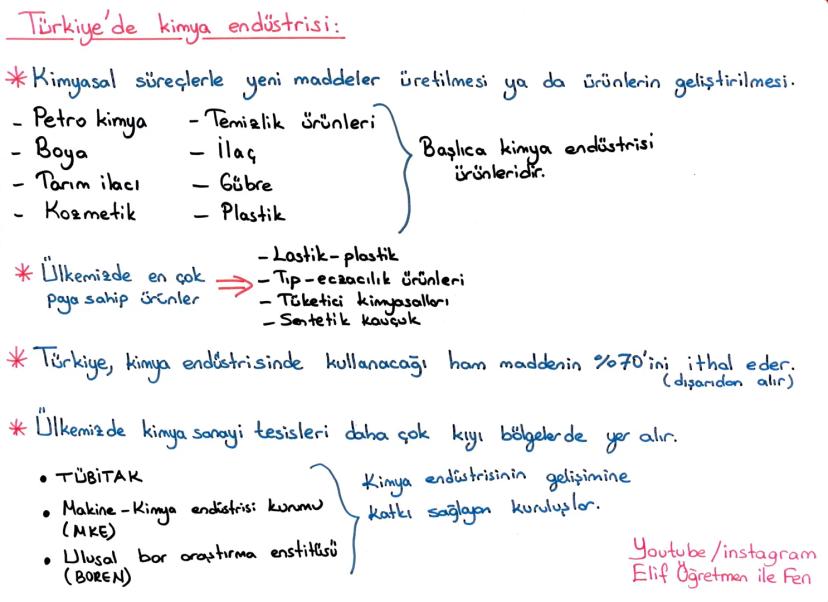 Türkiye'de kimya endüstrisi:
* Kimyasal süreçlerle yeni maddeler üretilmesi ya da ürünlerin geliştirilmesi.
- Petro kimya - Temizlik ürünleri
- Boya - İlaç
- Tarım ilacı - Gübre
- Kozmetik - Plastik
Başlıca kimya endüstrisi
ürünleridir.
* Ülkemizde en çok
paya sahip ürünler ⇒
- Lastik-plastik
- Tıp-eczacılık ürünleri
- Tüketici kimyasalları
- Sentetik kauçuk
* Türkiye, kimya endüstrisinde kullanacağı ham maddenin %70'ini ithal eder.
(dışarıdan alır)
* Ülkemizde kimya sanayi tesisleri daha çok kıyı bölgelerde yer alır.
• TÜBİTAK
• Makine-Kimya endüstrisi kurumu
(MKE)
• Ulusal bor araştırma enstitüsü
(BOREN)
Kimya endüstrisinin gelişimine
katkı sağlayan kuruluşlar.
Youtube/instagram
Elif Öğretmen ile Fen